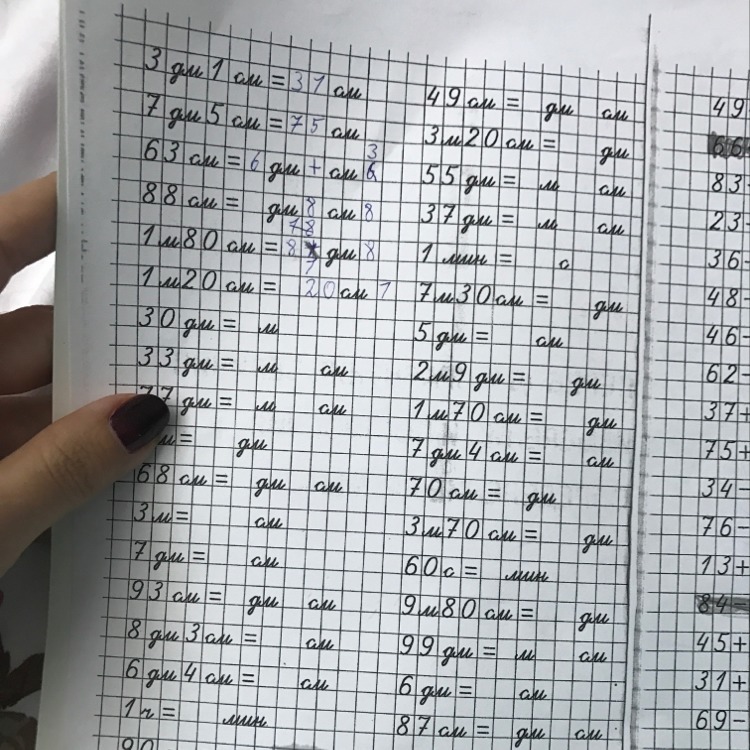 3 дм 1 см = 31 см
7 дм 5 см = 75 см
63 см = 6 дм + см 3
88 см = дм 8 см 8
1 м 80 см = дм 8
1 м 20 см = 20 см 1
30 дм = м
33 дм = м см
77 дм = м см
м = дм
68 см = дм см
3 м = см
7 дм = см
93 см = дм см
8 дм 3 см = см
6 дм 4 см = см
1 ч = мин
90
49 см = дм см
3 м 20 см = дм
55 дм = м см
37 дм = м см
1 мин = с
7 м 30 см = дм
5 дм = см
2 м 9 дм = дм
1 м 70 см = дм
7 дм 4 см = см
70 см = дм
3 м 70 см = дм
60 с = мин
9 м 80 см = дм
99 дм = м см
6 дм = см
87 см = дм см
49
66
83
23-
36-
48
46-
62-
37+
75+
34-
76-
13+
84-
45+
31+
69-